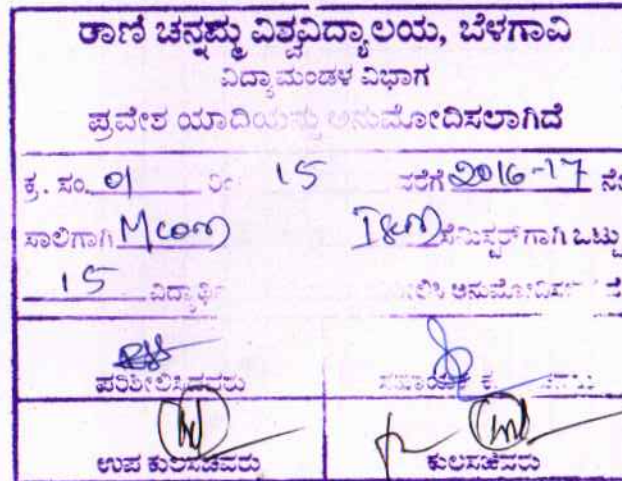 ರಾಣಿ ಚನ್ನಮ್ಮ ವಿಶ್ವವಿದ್ಯಾಲಯ, ಬೆಳಗಾವಿ
ವಿದ್ಯಾಮಂಡಳ ವಿಭಾಗ
ಪ್ರವೇಶ ಯಾದಿಯನ್ನು ಅನುಮೋದಿಸಲಾಗಿದೆ
ಕ್ರ. ಸಂ. 01 15 ವರೆಗೆ 2016-17 ನೇ
ಸಾಲಿಗಾಗಿ Mcom ISem ಸೆಮಿಸ್ಟರ್ ಗಾಗಿ ಒಟ್ಟು
15
ಪರಿಶೀಲಿಸಿದವರು
ಉಪ ಕುಲಸಚಿವರು ಕುಲಸಚಿವರು